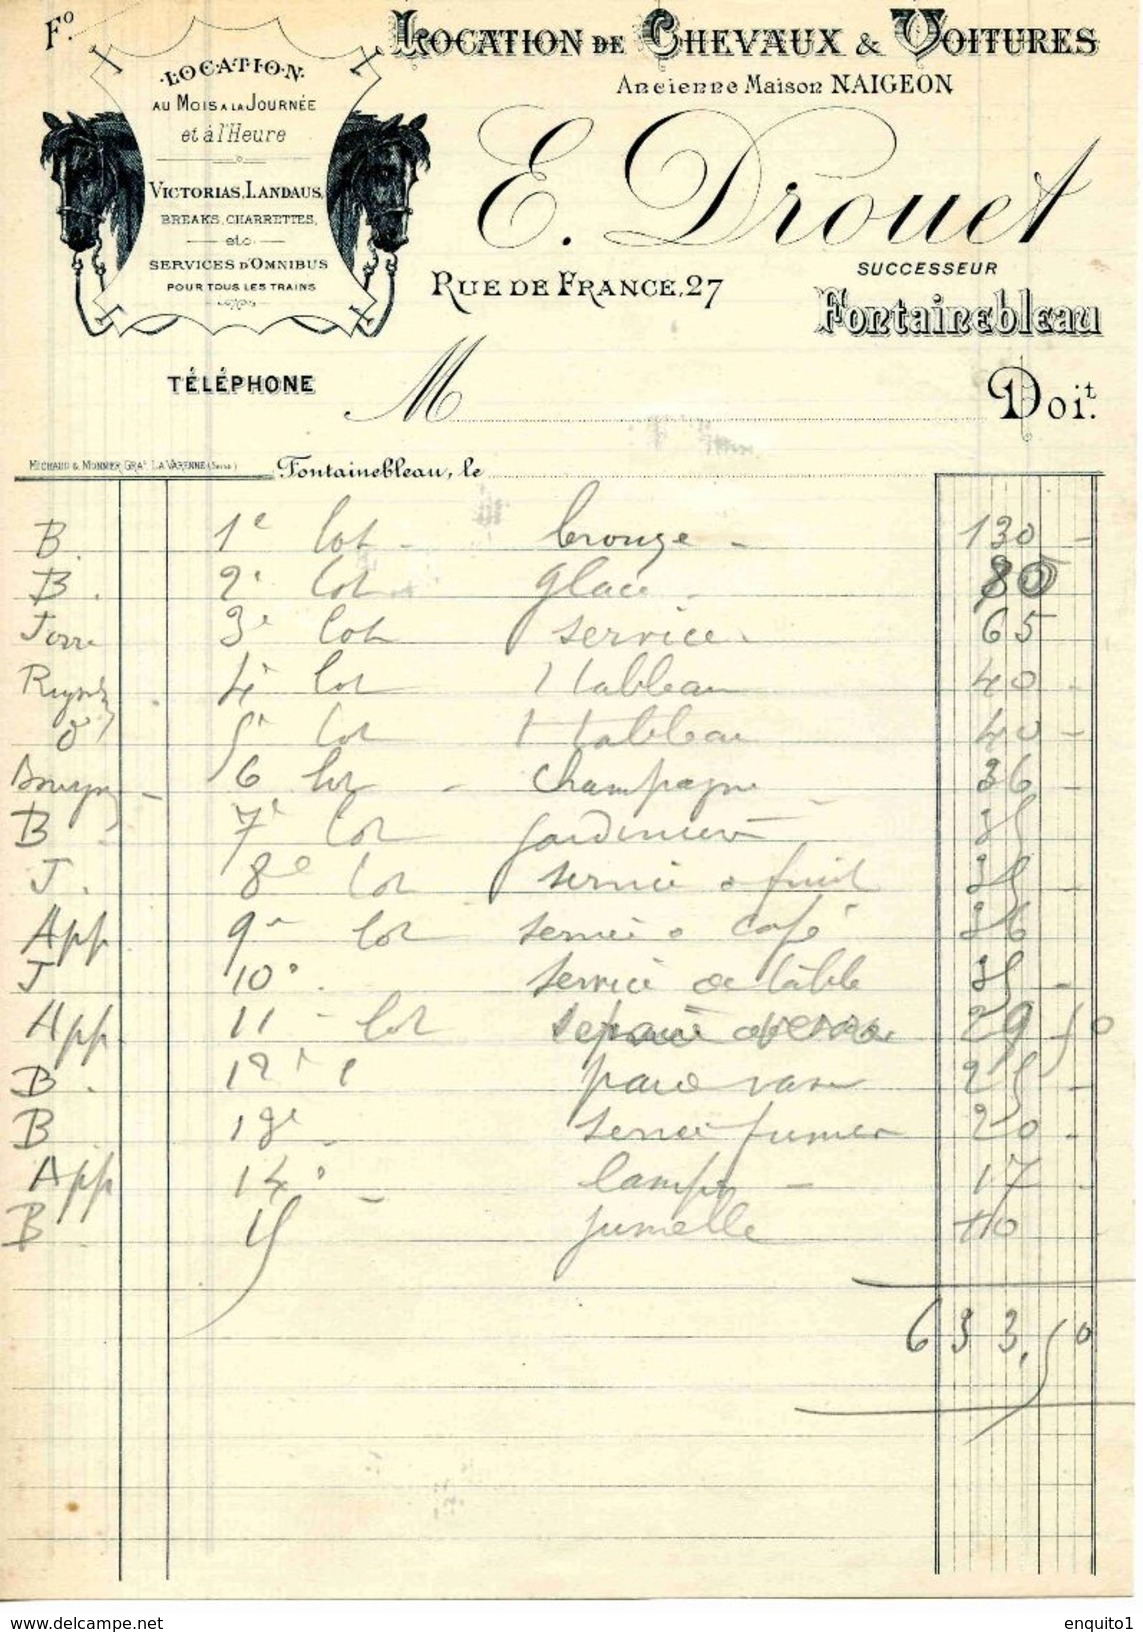 Fº.
LOCATION DE CHEVAUX & VOITURES
Ancienne Maison NAIGEON
E. Drouet
SUCCESSEUR
RUE DE FRANCE, 27
Fontainebleau
LOCATION
AU MOIS A LA JOURNÉE
et à l'Heure
VICTORIAS, LANDAUS,
BREAKS, CHARRETTES,
etc.
SERVICES D'OMNIBUS
POUR TOUS LES TRAINS
TÉLÉPHONE
M Doit.
MICHAUD & MONNIER, GRAV. LA VARENNE (Seine)
Fontainebleau, le
B. 1e lot - bronze - 130 -
B. 2e lot - glace - 80
3e lot service - 65
4e lot 1 tableau 40 -
5e lot 1 tableau 40 -
6 lot - champagne - 36 -
B - 7e lot jardinière 35
J. 8e lot service a fruit 35 -
App 9e lot service a café 36
J 10e service de table 35 -
App 11 - lot 29,50
B. 12e l paire vase 25 -
B 13e - service fumeur 20 -
App 14e - lampe - 17
B 15 jumelle 10
633,50
www.delcampe.net
enquito1